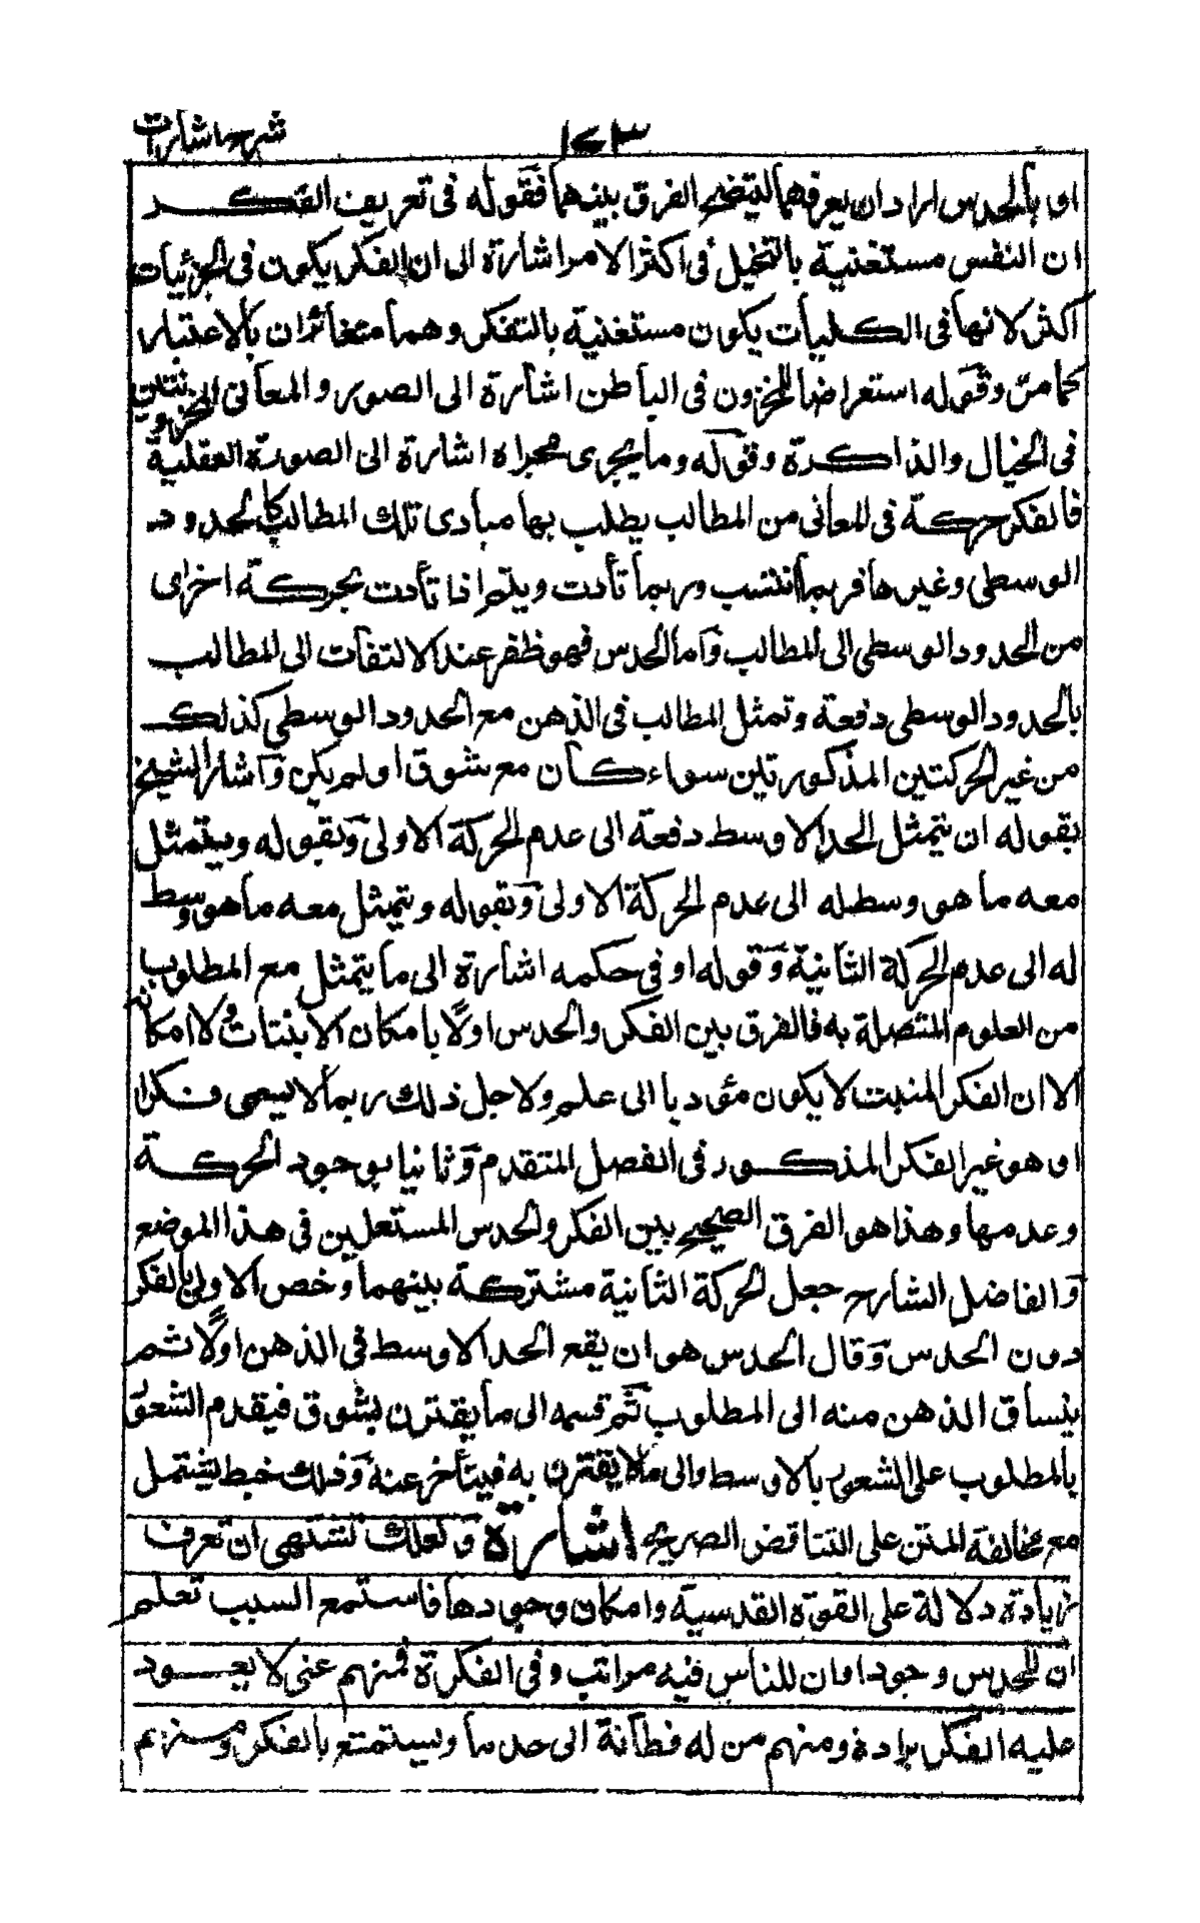 شرح اشارات
١٤٣
او بالحدس اراد ان يعرفهما ليتضح الفرق بينهما فقوله فى تعريف الفكر
ان النفس مستغنية بالتخيل فى اكثر الامر اشارة الى ان الفكر يكون فى الجزئيات
اكثر لانها فى الكليات يكون مستغنية بالتفكر وهما متغائران بالاعتبار
كما مر وقوله استعراضا للمخزون فى الباطن اشارة الى الصور والمعانى المخزونتين
فى الخيال والذاكرة وقوله وما يجرى مجراه اشارة الى الصورة العقلية
فالفكر حركة فى المعانى من المطالب يطلب بها مبادى تلك المطالب كالحدود
الوسطى وغيرها فربما انبتت وربما تأدت ويتم اذا تأدت بحركة اخرى
من الحدود الوسطى الى المطالب واما الحدس فهو ظفر عند الالتفات الى المطالب
بالحدود الوسطى دفعة وتمثل المطالب فى الذهن مع الحدود الوسطى كذلك
من غير الحركتين المذكورتين سواء كان مع شوق او لم يكن واشار الشيخ
بقوله ان يتمثل الحد الاوسط دفعة الى عدم الحركة الاولى وبقوله ويتمثل
معه ما هو وسط له الى عدم الحركة الاولى وبقوله ويتمثل معه ما هو وسط
له الى عدم الحركة الثانية وقوله او فى حكمه اشارة الى ما يتمثل مع المطلوب
من العلوم المتصلة به فالفرق بين الفكر والحدس اولا بامكان الانبتات ولا امكانه
الا ان الفكر المنبت لا يكون مؤديا الى علم ولاجل ذلك ربما لا يسمى فكرا
او هو غير الفكر المذكور فى الفصل المتقدم وثانيا بوجود الحركة
وعدمها وهذا هو الفرق الصحيح بين الفكر والحدس المستعملين فى هذا الموضع
والفاضل الشارح جعل الحركة الثانية مشتركة بينهما وخص الاولى بالفكر
دون الحدس وقال الحدس هو ان يقع الحد الاوسط فى الذهن اولا ثم
ينساق الذهن منه الى المطلوب ثم قسمه الى ما يقترن بشوق فيقدم الشعور
بالمطلوب على الشعور بالاوسط والى ما لا يقترن به فيتأخر عنه وذلك خبط يشتمل
مع مخالفة المتن على التناقض الصريح اشارة ولعلك تشتهى ان تعرف
زيادة دلالة على القوة القدسية وامكان وجودها فاستمع السبب تعلم
ان للحدس وجودا وان للناس فيه مراتب وفى الفكرة فمنهم غنى لا يعود
عليه الفكر برادة ومنهم من له فطانة الى حد ما ويستمتع بالفكر ومنهم